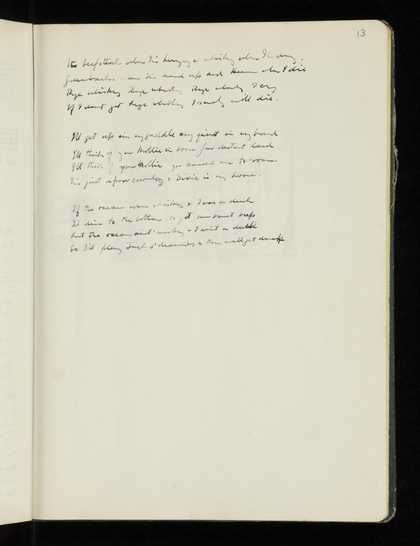 13
beefsteak when I'm hungry & whiskey when I'm dry
Greenbacks when I'm hard up and Heaven when I die
Rye whiskey Rye whiskey Rye whiskey I cry
If I don't get Rye whiskey I surely will die.
I'll get up in my saddle my quirt in my hand
I'll think of you Mollie in some far distant land
I'll think of you Mollie you caused me to roam
I'm just a poor cowboy & Dixie is my home.
If the ocean was whiskey & I was a duck
I'd dive to the bottom & get one sweet sup
But the ocean ain't whiskey & I ain't a duck
So I'll play Jack o' diamonds & then we'll get drunk